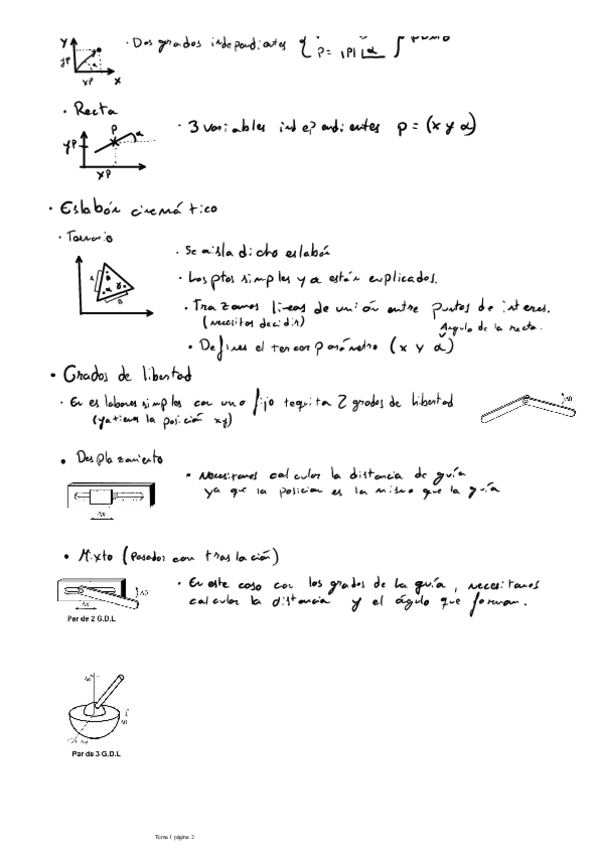 y
· Dos grados independientes { P = |P| α }
yP
xP x
· Recta
P α
· 3 variables independientes p = (x y α)
yP
xP
· Eslabón cinemático
· Ternario
· Se aisla dicho eslabón
· Los ptos simples ya están explicados.
· Trazamos lineas de unión entre puntos de interes.
(necesitas decidir)
Angulo de la recta.
· Defines el tercer parámetro (x y α)
· Grados de libertad
· En eslabones simples con uno fijo te quita 2 grados de libertad
(ya tienes la posición xy)
Δθ
· Desplazamiento
· Necesitamos calcular la distancia de guía
ya que la posicion es la misma que la guía
Δx
· Mixto (Pasador con traslación)
· En este caso con los grados de la guía, necesitamos
calcular la distancia y el ángulo que forman.
Δθ
Δx
Par de 2 G.D.L
Par de 3 G.D.L
Tema 1 página 2